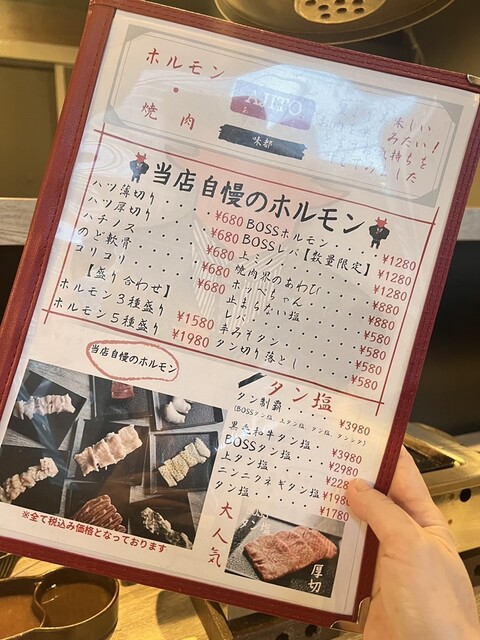 ホルモン
・
焼肉
AJITO
味都
味しい
みたい！
持ちを
した
当店自慢のホルモン
ハツ薄切り ¥680
ハツ厚切り ¥680
ハチノス ¥680
のど軟骨 ¥680
コリコリ ¥680
【盛り合わせ】
ホルモン3種盛り ¥1580
ホルモン5種盛り ¥1980
BOSSホルモン ¥1280
BOSSレバ【数量限定】 ¥1280
上ミノ ¥880
焼肉界のあわび ¥880
ホッペちゃん ¥580
止まらない塩 ¥580
レバー ¥580
辛みそタン ¥580
タン切り落とし ¥580
当店自慢のホルモン
タン塩
タン制覇 ¥3980
黒毛和牛タン塩 ¥3980
BOSSタン塩 ¥2980
上タン塩 ¥228
ニンニクネギタン塩 ¥1980
タン塩 ¥1780
大人気
厚切
※全て税込み価格となっております